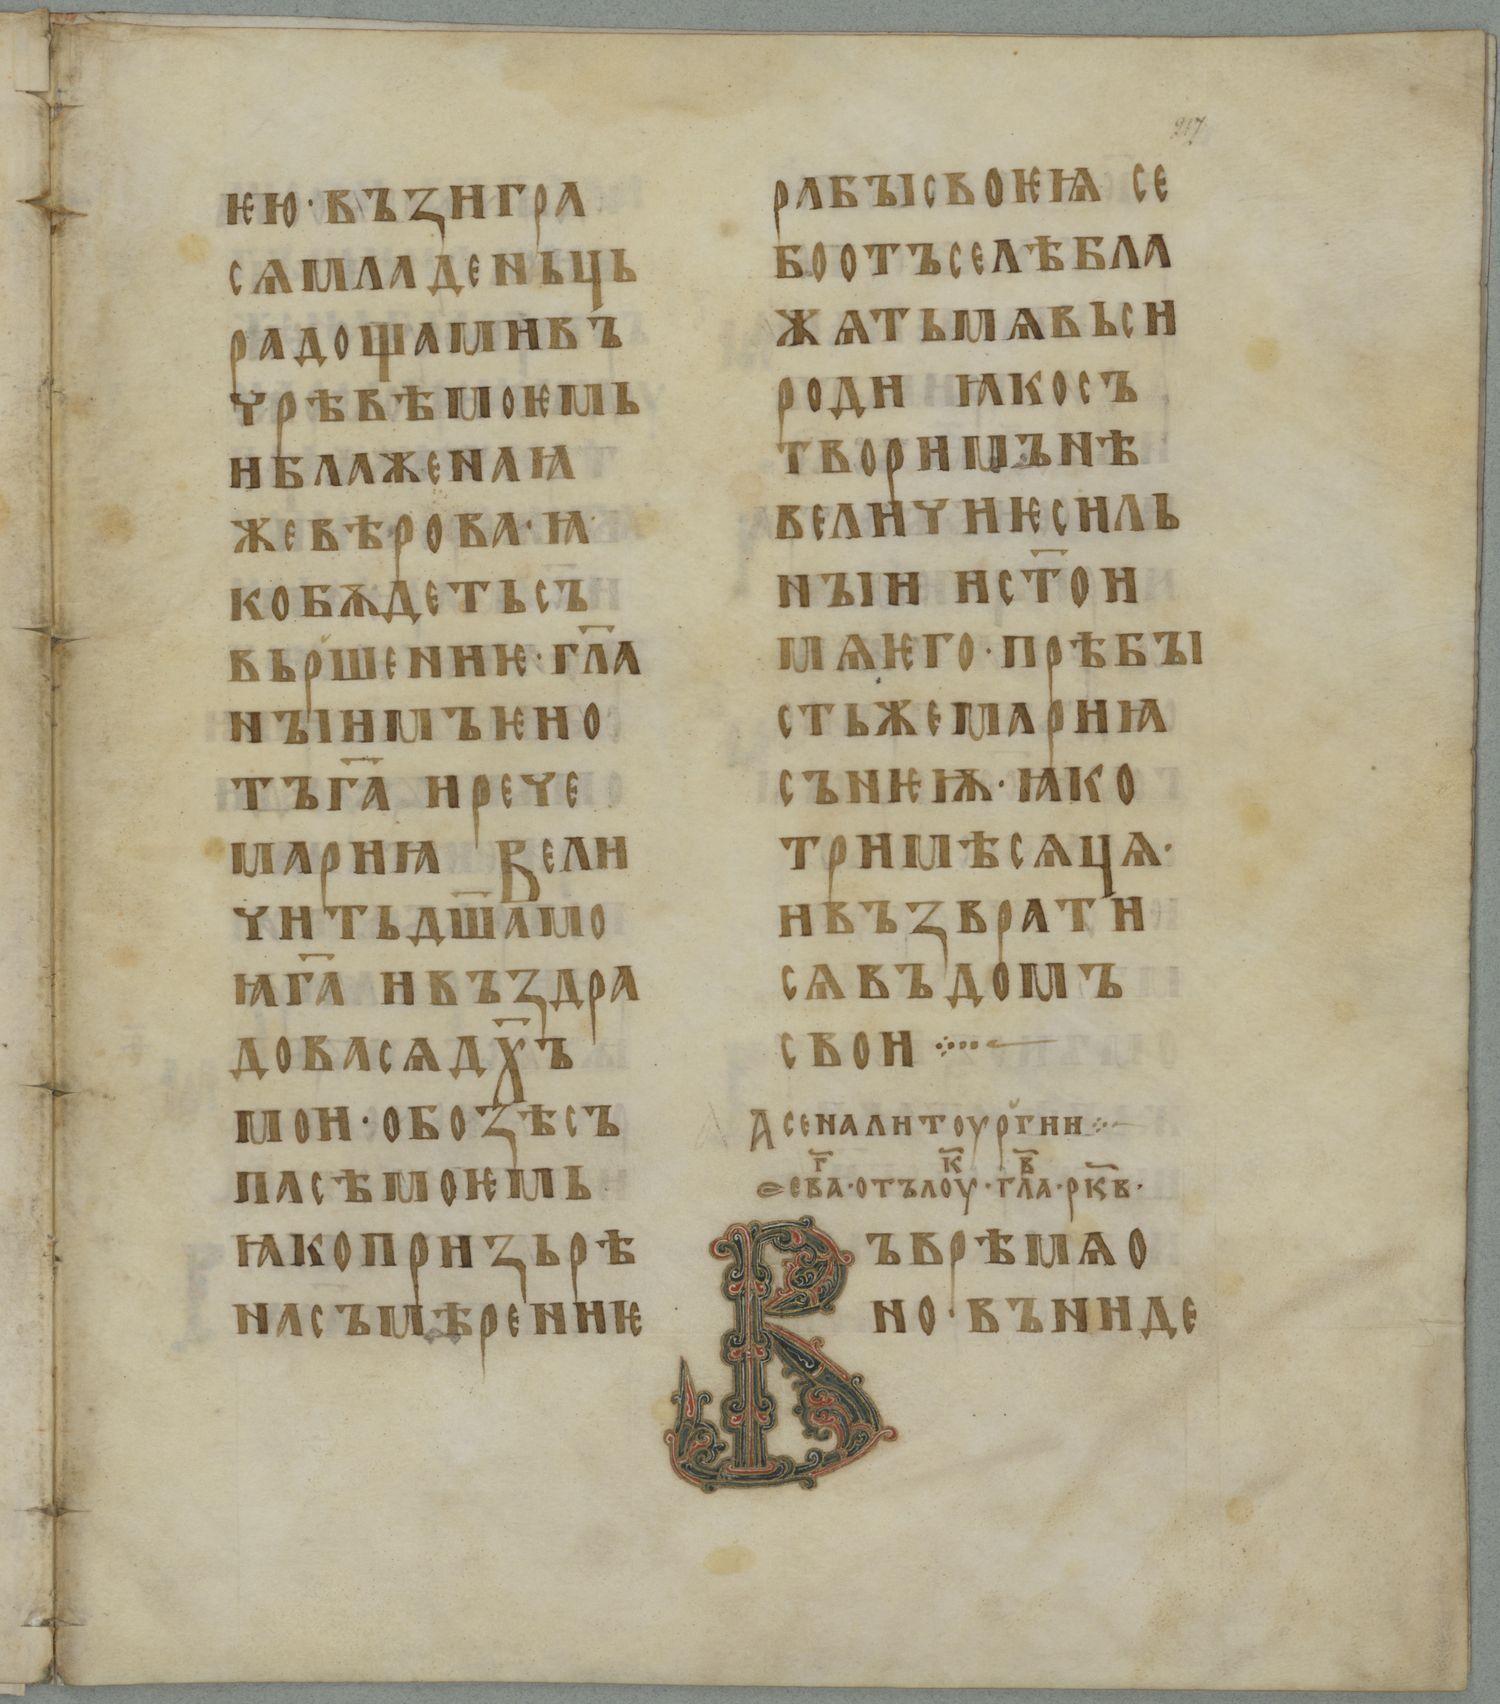 217
ѥю · въꙁигра
сѧ младеньць
радощами въ
ꙋрѣвѣ моѥмь
и блаженаꙗ
же вѣрова · ꙗ
ко бѫдеть съ
вьршениѥ · гл҃а
нꙑимъ ѥи о
тъ г҃а и рече
мариꙗ Вели
чить дш҃а мо
ꙗ г҃а и въꙁдра
дова сѧ дх҃ъ
мои · о боꙁѣ съ
пасѣ моѥмь
ꙗко приꙁьрѣ
на съмѣрениѥ
рабꙑ своѥꙗ се
бо отъселѣ бла
жѧть мѧ вьси
роди ꙗко съ
твори мънѣ
величиѥ сильнꙑи и ст҃о и
мѧ ѥго · прѣбꙑ
сть же мариꙗ
съ нѥѭ · ꙗко
три мѣсѧцѧ ·
и въꙁврати
сѧ въ домъ
свои
А се на литоургии
еѵа · отъ лоу · гла · рк҃в ·
Въ врѣмѧ о
но · въниде